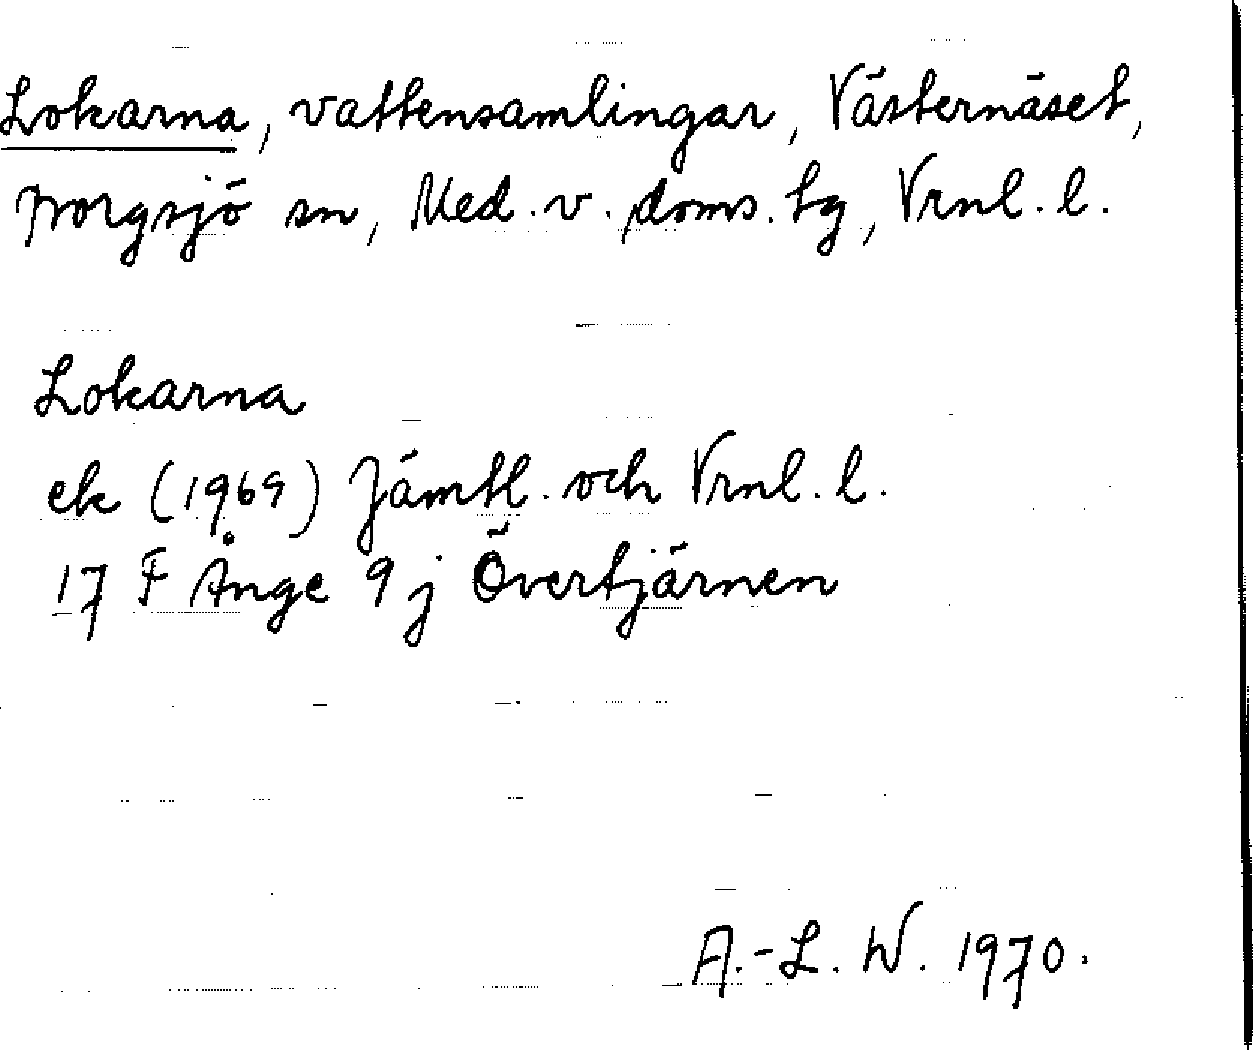 Lokarna, vattensamlingar, Västernäset,
Borgsjö sn, Med. v. doms. tg, Vrnl. l.
Lokarna
ek (1969) Jämtl. och Vrnl. l.
17 F Ånge 9 j Övertjärnen
A.-L. W. 1970.